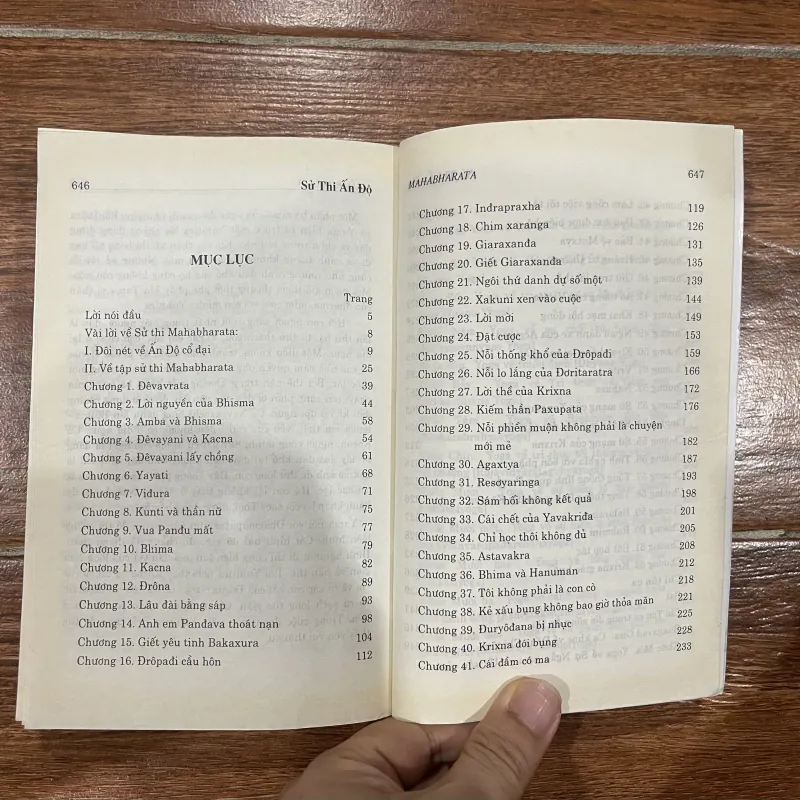 646 Sử Thi Ấn Độ
MỤC LỤC
Trang
Lời nói đầu 5
Vài lời về Sử thi Mahabharata: 8
I. Đôi nét về Ấn Độ cổ đại 9
II. Về tập sử thi Mahabharata 25
Chương 1. Đêvavrata 39
Chương 2. Lời nguyền của Bhisma 44
Chương 3. Amba và Bhisma 58
Chương 4. Đêvayani và Kacna 54
Chương 5. Đêvayani lấy chồng 61
Chương 6. Yayati 68
Chương 7. Viđura 71
Chương 8. Kunti và thần nữ 75
Chương 9. Vua Panđu mất 77
Chương 10. Bhima 79
Chương 11. Kacna 82
Chương 12. Đrôna 89
Chương 13. Lâu đài bằng sáp 93
Chương 14. Anh em Panđava thoát nạn 98
Chương 15. Giết yêu tinh Bakaxura 104
Chương 16. Đrôpađi cầu hôn 112
MAHABHARATA 647
Chương 17. Indrapraxha 119
Chương 18. Chim xaranga 126
Chương 19. Giaraxanđa 131
Chương 20. Giết Giaraxanđa 135
Chương 21. Ngôi thứ danh dự số một 139
Chương 22. Xakuni xen vào cuộc 144
Chương 23. Lời mời 149
Chương 24. Đặt cược 153
Chương 25. Nỗi thống khổ của Đrôpađi 159
Chương 26. Nỗi lo lắng của Đơritaratra 166
Chương 27. Lời thề của Krixna 172
Chương 28. Kiếm thần Paxupata 176
Chương 29. Nỗi phiền muộn không phải là chuyện
mới mẻ 182
Chương 30. Agaxtya 187
Chương 31. Resơyaringa 193
Chương 32. Sám hối không kết quả 198
Chương 33. Cái chết của Yavakriđa 201
Chương 34. Chỉ học thôi không đủ 205
Chương 35. Astavakra 208
Chương 36. Bhima và Hanuman 212
Chương 37. Tôi không phải là con cò 218
Chương 38. Kẻ xấu bụng không bao giờ thỏa mãn 221
Chương 39. Đuryôđana bị nhục 225
Chương 40. Krixna đói bụng 228
Chương 41. Cái đầm có ma 233